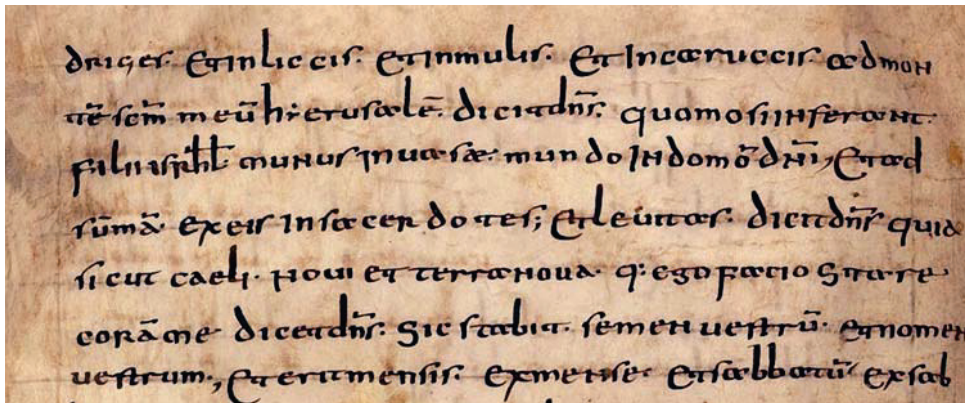 driges. Et in liccis. Et in mulis. Et In carruccis. ad mon
tē scm̄ meū hierusalē. dicit dn̄s. quomo si inferant.
filii isrl̄ munus in uasa. mundo In domō dn̄i, Et ad
sūmā ex eis In sacerdotes; Et leuitas. dicit dn̄s quia
sicut caeli. noui et terra noua. q: ego facio Stare
corā me dicet dn̄s. Sic stabit. semen uestrū. et nomen
uestrum., Et erit mensis. Ex mense. Et sabbatū ex sab